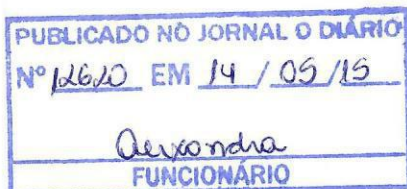 PUBLICADO NO JORNAL O DIÁRIO
Nº 12620 EM 14 / 05 /15
FUNCIONÁRIO